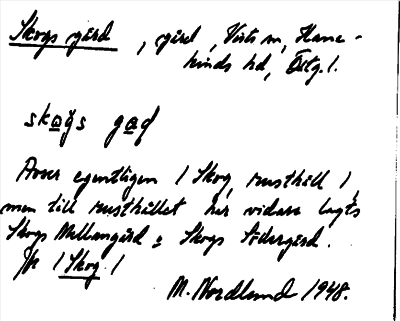 Skogs gård , gård, Vists sn, Hane-
kinds hd, Östg.l.
skogs gaḍ
Avser egentligen 1 Skog, rusthåll 1,
men till rusthållet har vidare lagts
Skogs Mellangård o Skogs Södergård.
Jfr 1 Skog 1
M. Nordlund 1948.